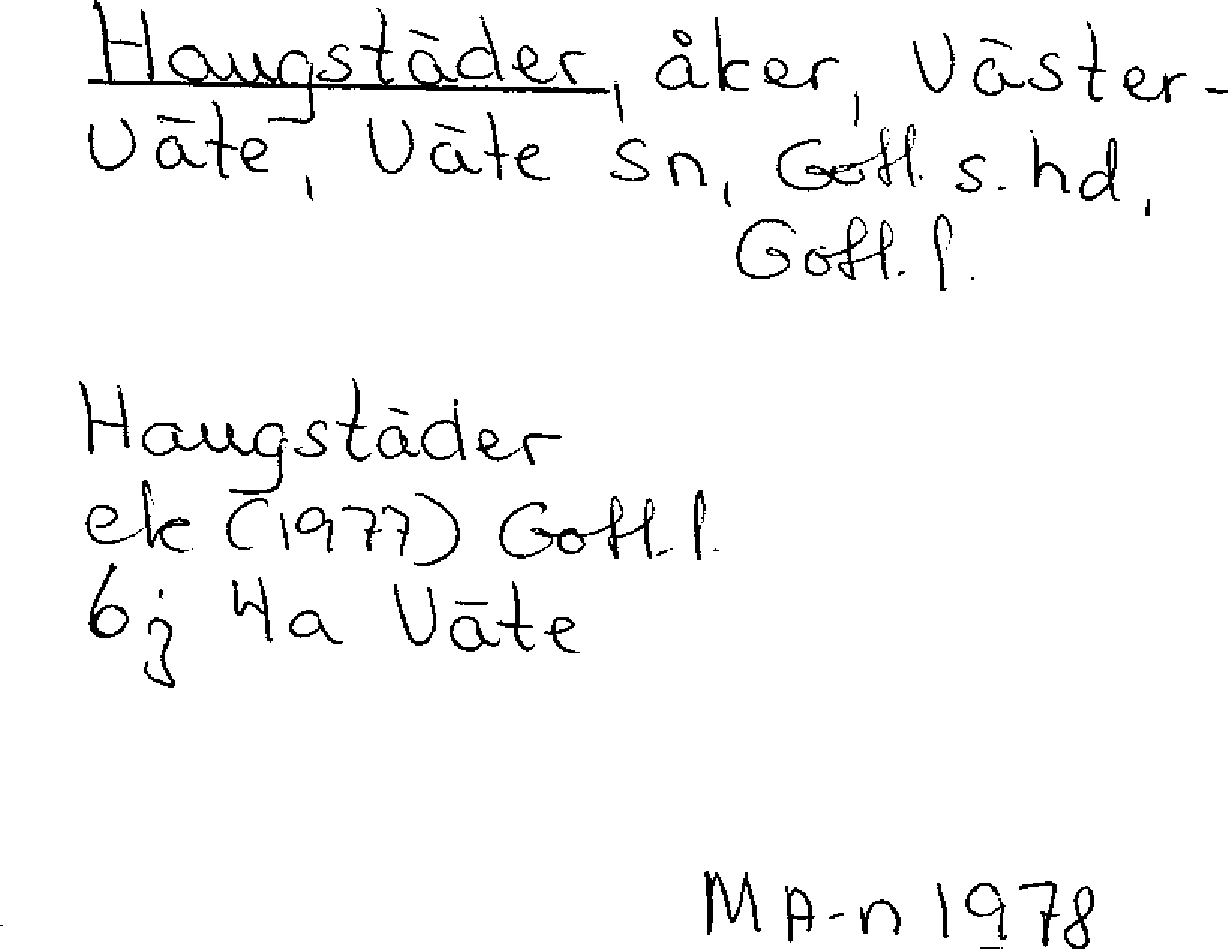 Haugstäder, åker, Väster-
väte, Väte sn, Gotl. s. hd,
Gotl. l.
Haugstäder
ek (1977) Gotl. l.
6j 4a Väte
MA-n 1978